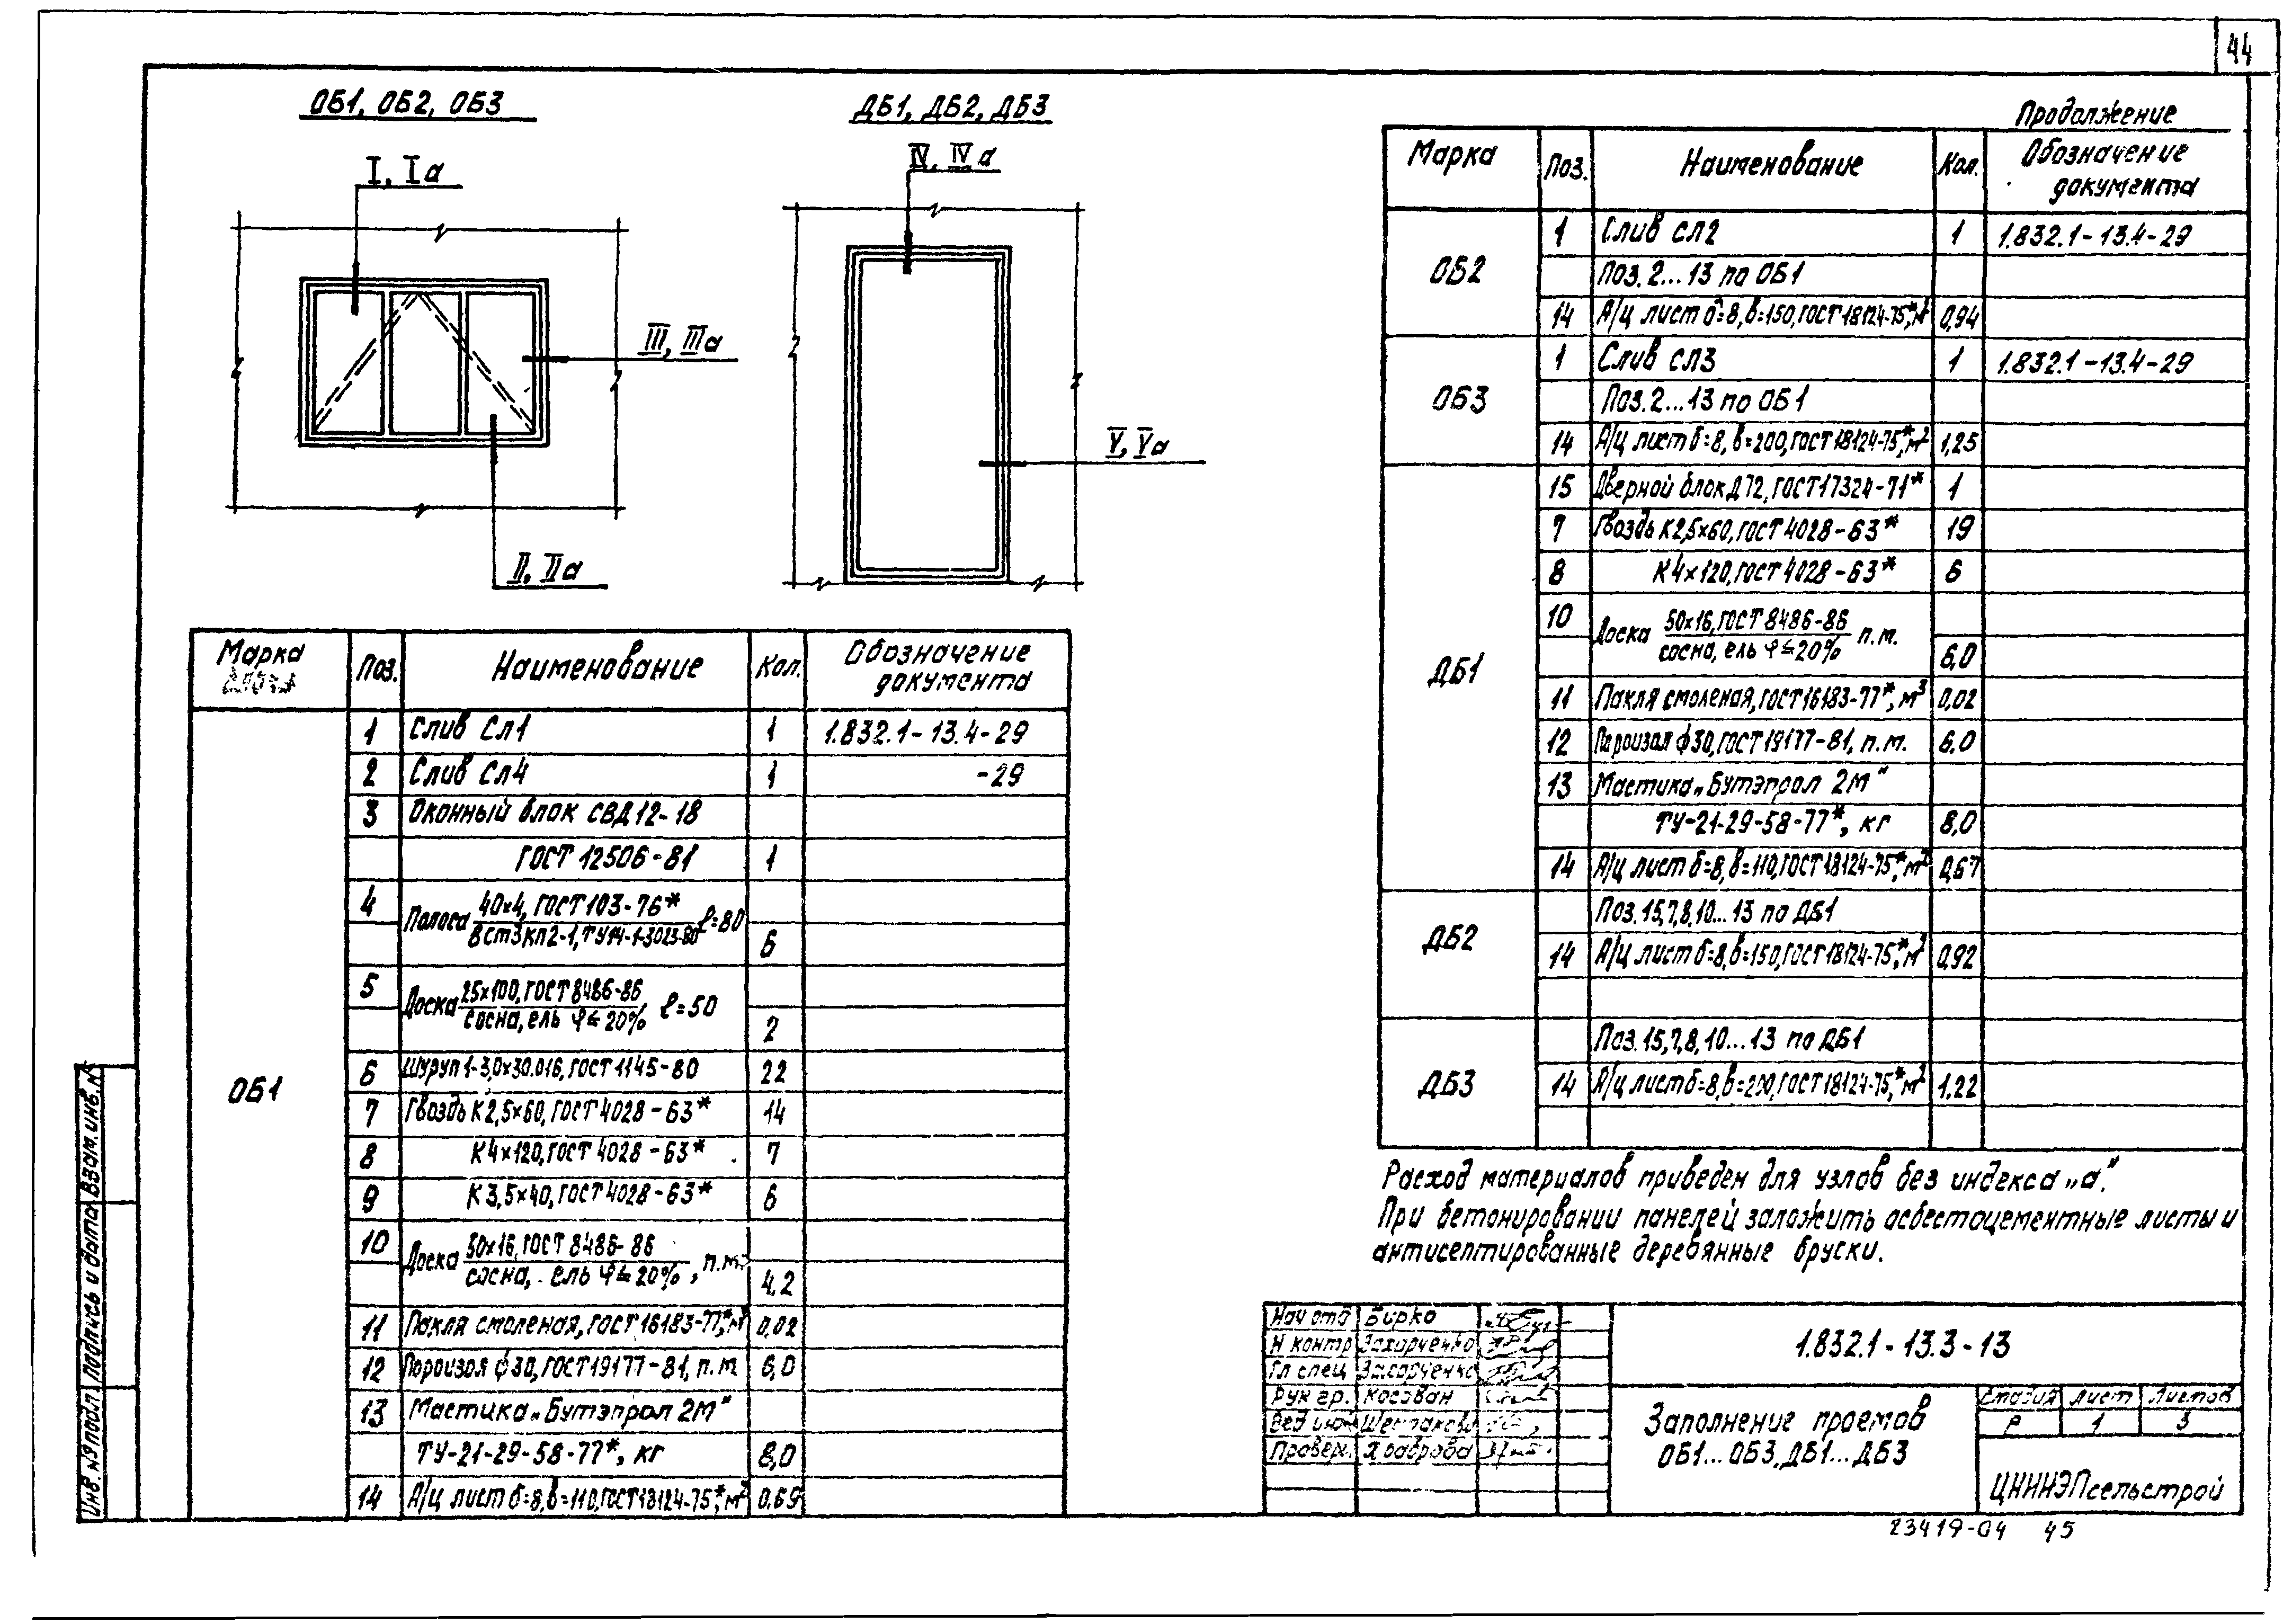 44
ОБ1, ОБ2, ОБ3
ДБ1, ДБ2, ДБ3
I, Iа
III, IIIа
II, IIа
IV, IVа
V, Vа
Марка Поз. Наименование Кол. Обозначение документа
ОБ1
1 Слив Сл1 1 1.832.1-13.4-29
2 Слив Сл4 1 -29
3 Оконный блок СВД12-18
ГОСТ 12506-81 1
4 Полоса 40х4, ГОСТ 103-76* / ВСт3кп2-1, ТУ14-1-3023-80 ℓ=80 6
5 Доска 25х100, ГОСТ 8486-86 / сосна, ель φ≤20% ℓ=50 2
6 Шуруп 1-3,0х30.016, ГОСТ 1145-80 22
7 Гвоздь К2,5х60, ГОСТ 4028-63* 14
8 К4х120, ГОСТ 4028-63* 7
9 К3,5х40, ГОСТ 4028-63* 6
10 Доска 50х16, ГОСТ 8486-86 / сосна, ель φ≤20%, п.м. 4,2
11 Пакля смоленая, ГОСТ 16183-77*, м³ 0,02
12 Пороизол ф30, ГОСТ 19177-81, п.м. 6,0
13 Мастика „Бутэпрол 2М"
ТУ-21-29-58-77*, кг 8,0
14 А/ц лист б=8, в=110, ГОСТ 18124-75*, м² 0.69
Продолжение
Марка Поз. Наименование Кол. Обозначение документа
ОБ2
1 Слив сл2 1 1.832.1-13.4-29
Поз. 2...13 по ОБ1
14 А/ц лист б=8, в=150, ГОСТ 18124-75*, м² 0,94
ОБ3
1 Слив сл3 1 1.832.1-13.4-29
Поз. 2...13 по ОБ1
14 А/ц лист б=8, в=200, ГОСТ 18124-75*, м² 1,25
ДБ1
15 Дверной блок Д72, ГОСТ 17324-71* 1
7 Гвоздь К2,5х60, ГОСТ 4028-63* 19
8 К4х120, ГОСТ 4028-63* 6
10 Доска 50х16, ГОСТ 8486-86 / сосна, ель φ≤20% п.м. 6,0
11 Пакля смоленая, ГОСТ 16183-77*, м³ 0,02
12 Пароизол ф30, ГОСТ 19177-81, п.м. 6,0
13 Мастика „Бутэпрол 2М"
ТУ-21-29-58-77*, кг 8,0
14 А/ц лист б=8, в=110, ГОСТ 18124-75*, м² 0,67
ДБ2
Поз. 15,7,8,10...13 по ДБ1
14 А/ц лист б=8, в=150, ГОСТ 18124-75*, м² 0,92
ДБ3
Поз. 15,7,8,10...13 по ДБ1
14 А/ц лист б=8, в=200, ГОСТ 18124-75*, м² 1,22
Расход материалов приведен для узлов без индекса „а".
При бетонировании панелей заложить асбестоцементные листы и
антисептированные деревянные бруски.
Нач отд Бирко
Н контр Захарченко
Гл спец Захарченко
Рук гр. Косован
Вед инж
Провер. Храброва
1.832.1-13.3-13
Заполнение проемов
ОБ1...ОБ3, ДБ1...ДБ3
Стадия Лист Листов
Р 1 3
ЦНИИЭПсельстрой
23419-04 45
Инв. № подл. Подпись и дата Взам. инв. №